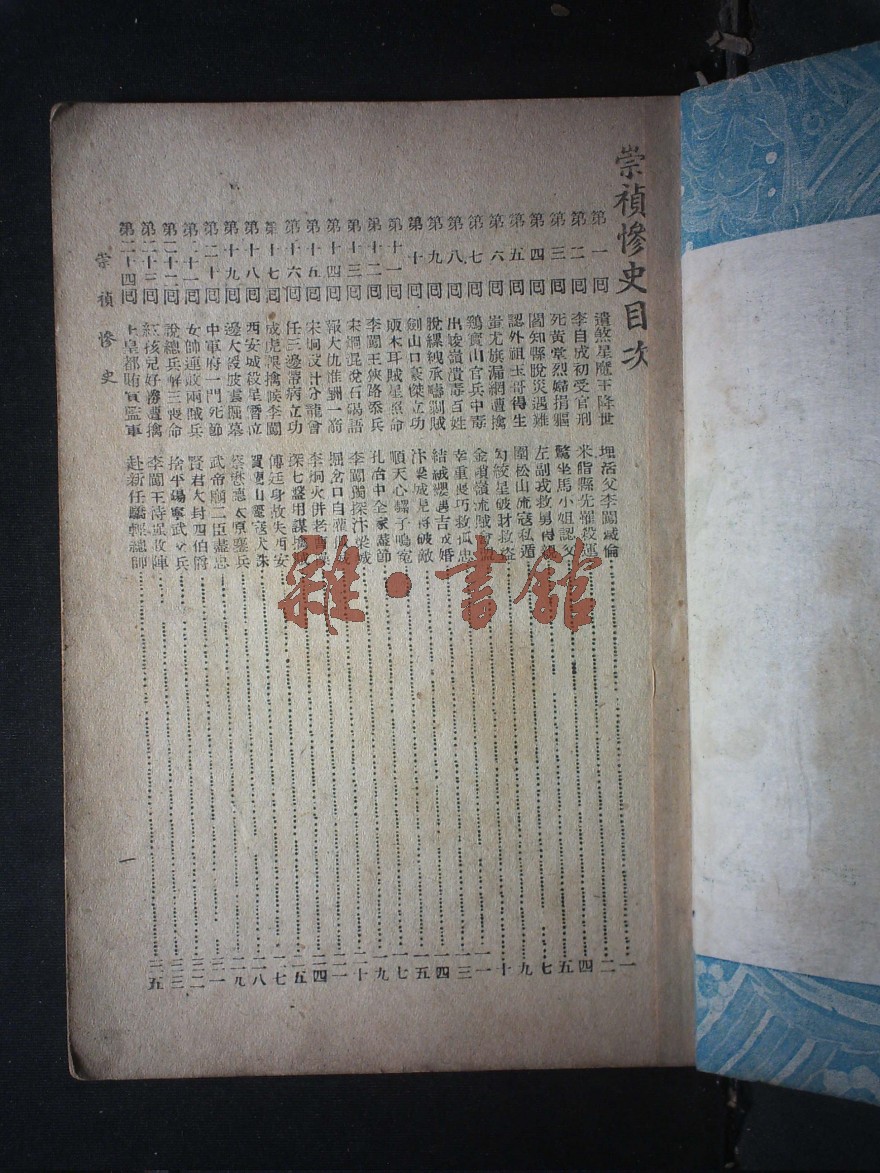 崇禎慘史目次
第一回 遺煞星魔王降世 埋活父李闖滅倫 一
第二回 李自成初受官刑 米脂縣先罹殺運 二
第三回 死黃堂烈婦捐軀 驚坐馬小姐認父 四
第四回 閻知縣脫災遇難 左副戎救男 五
第五回 認外祖玉哥得生 圍松山流寇私遁 七
第六回 蚩尤旗漏網遭擒 勾絞星破財救 九
第七回 鷄寶山官兵中毒 金 嶺流賊 十
第八回 出 嶺潰毒百姓 幸重 巧救孤忠 一一
第九回 脫縲絏承疇剿賊 結 纓遇吉成婚 一三
第十回 劍山口豪傑立功 汴梁城虎將破敵 一四
第十一回 販木耳賊星照命 順天心騾子鳴寃 一五
第十二回 李闖王狹路添兵 孔冶中全家盡節 一七
第十三回 宋烱混說石碣語 李闖獨探汴梁城 一九
第十四回 報大仇准酬一箭 掘岔口自灌 二十
第十五回 宋烱改卄分龍會 李烱火併老 二一
第十六回 任三邊帶病立功 探七盤用謀 城 二四
第十七回 成虎誤擒假李闖 傅廷身故失西安 二五
第十八回 西安城殺星僭位 寶慶山 寇大誅 二七
第十九回 邊大綬波雲掘墓 蔡懋德太原鏖兵 二八
第二十回 中軍府一門死節 武帝廟二臣盡忠 二九
第二十一回 女帥連敗兩賊兵 賢君大封四伯爵 三一
第二十二回 說總兵解三喪命 捨平陽寧武 兵 三二
第二十三回 紅孩兒好勝遭擒 李闖王恃眾敗陣 三三
第二十四回 上皇都賄買監軍 赴新任驕輕總帥 三五
崇禎慘史
一
雜·書館